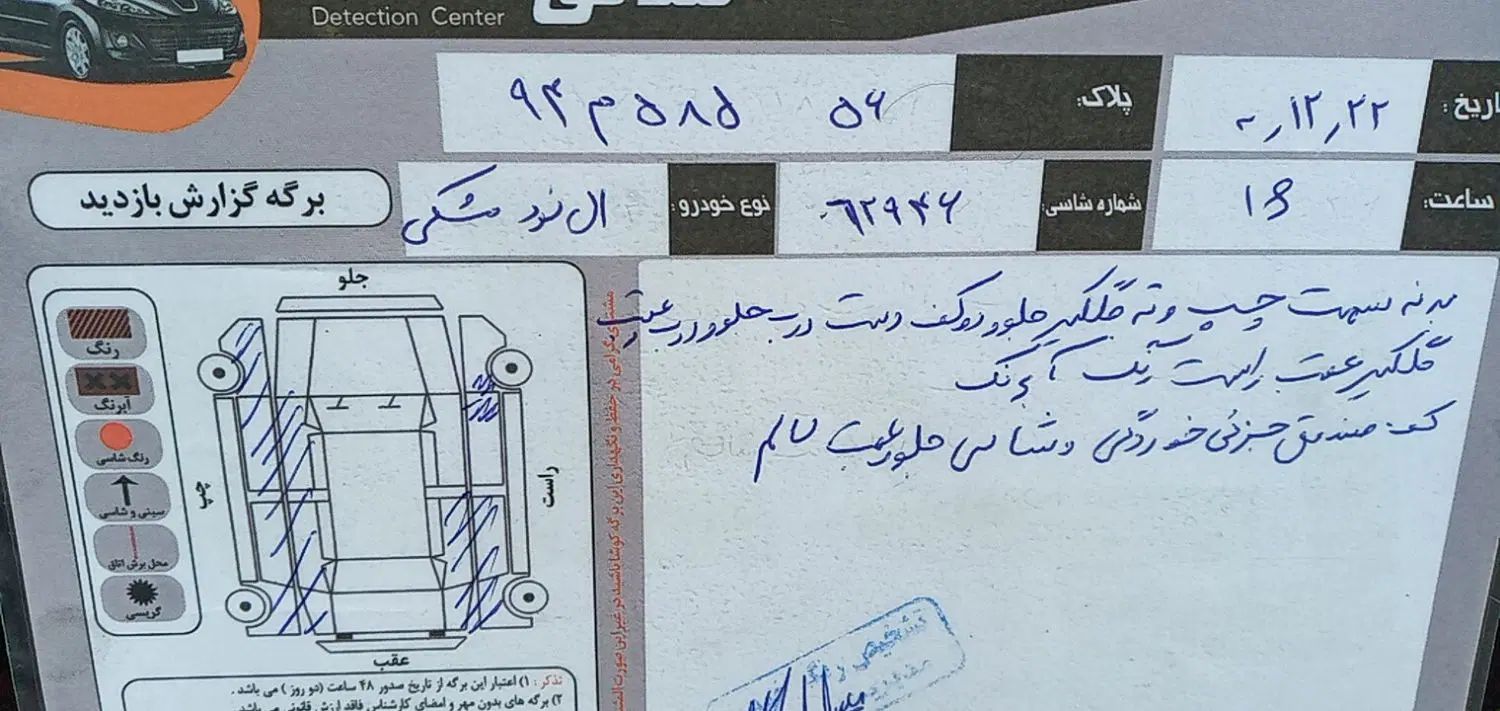 Detection Center
تاریخ: ۰۰,۱۲,۲۲
پلاک: ۹۴ م ۵۸۵ ۵۶
ساعت: ۱۶
شماره شاسی: ۶۲۹۴۶
نوع خودرو: ال نود مشکی
برگه گزارش بازدید
جلو
رنگ
آبرنگ
رنگ شاسی
سینی و شاسی
محل برش اتاق
گریسی
چپ
راست
عقب
بدنه سمت چپ و ته گلگیر جلو و رکف درب جلو و درب عقب
گلگیر عقب راست رنگ
کف صندوق جزئی خوردگی و شاسی جلو عقب سالم
تذکر: ۱) اعتبار این برگه از تاریخ صدور ۴۸ ساعت (دو روز) می باشد.
۲) برگه های بدون مهر و امضای کارشناس فاقد ارزش قانونی می باشد.
تشخیص رنگ